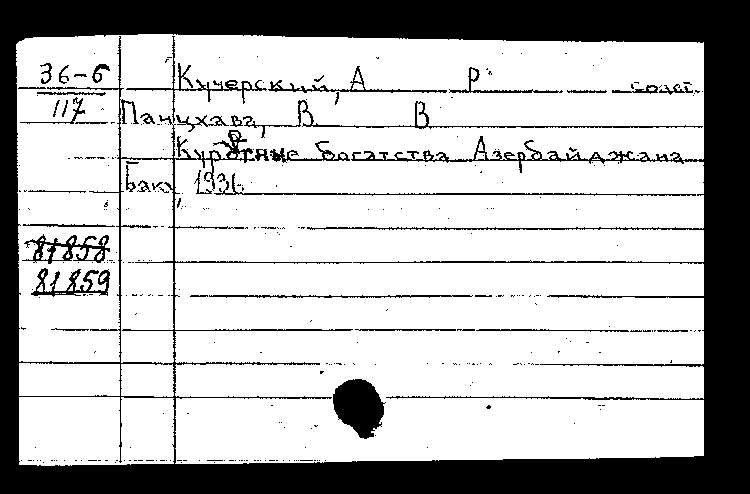 36-5 Кучерский, А Р. сост.
117 Панцхава, В В
Курортные богатства Азербайджана
Баку, 1936
81858
81859